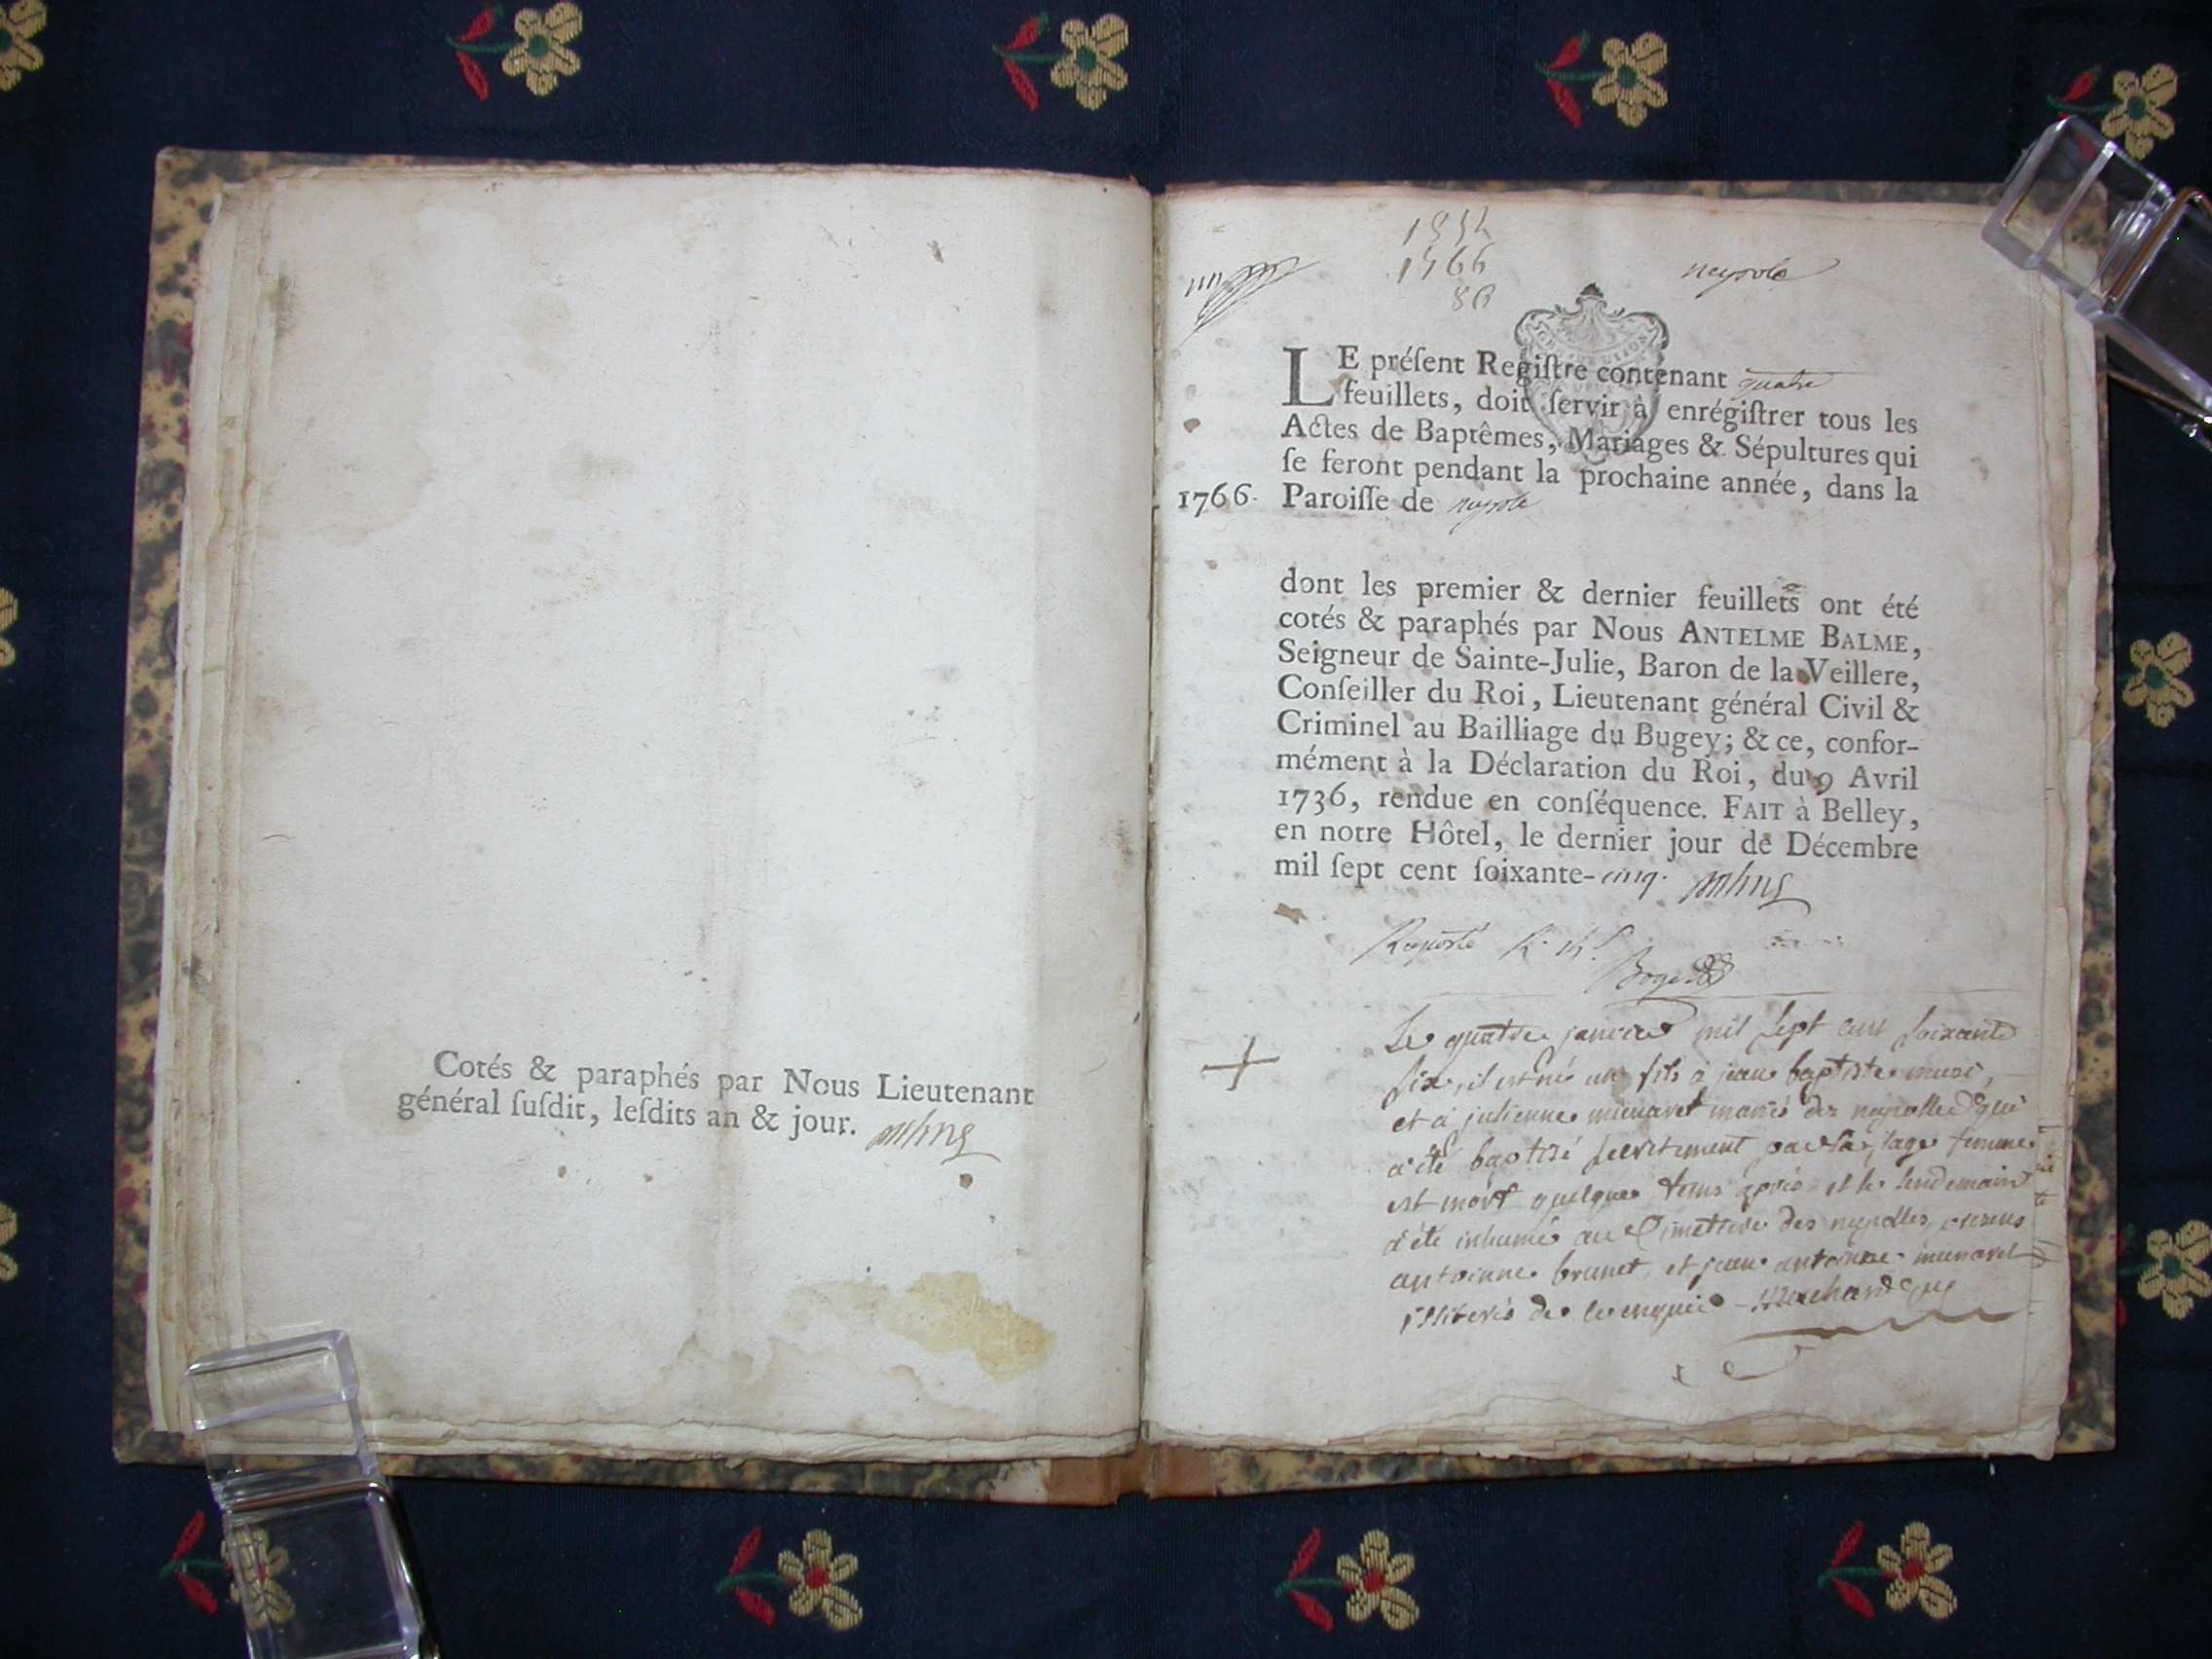 Cotés & paraphés par Nous Lieutenant
général ſuſdit, leſdits an & jour.
un
1766
neyrole
LE préſent Regiſtre contenant quatre
feuillets, doit ſervir à enrégiſtrer tous les
Actes de Baptêmes, Mariages & Sépultures qui
ſe feront pendant la prochaine année, dans la
1766. Paroiſſe de neyrole
dont les premier & dernier feuillets ont été
cotés & paraphés par Nous ANTELME BALME,
Seigneur de Sainte-Julie, Baron de la Veillere,
Conſeiller du Roi, Lieutenant général Civil &
Criminel au Bailliage du Bugey; & ce, confor-
mément à la Déclaration du Roi, du 9 Avril
1736, rendue en conſéquence. FAIT à Belley,
en notre Hôtel, le dernier jour de Décembre
mil ſept cent ſoixante-cinq.
Le quatre janvier mil sept cent soixante
six, il est né un fils à jean baptiste
et à julienne munaret mariés des neyrolles qui
a été baptisé secretement par la sage femme
est mort quelque tems après et le lendemain
a été inhumé au Cimettire des neyrolles, presens
antoinne brunet et jean antoinne munaret
illiterés de ce enquis